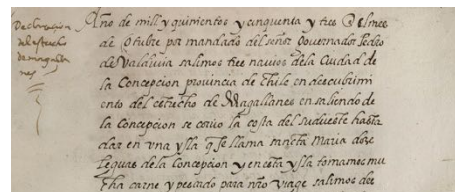 Declaracion
del estrecho
de magalla
nes
Año de mill y quinientos y cinquenta y tres Del mes
de Otubre por mandado del señor Governador Pedro
de Valdiuia salimos tres navios dela Ciudad de
la Concepcion provincia de Chile en descubrimi
ento del estrecho de Magallanes en saliendo de
la Concepcion se corrio la costa del sudueste hasta
dar en vna ysla q̃ se llama sancta Maria doze
leguas dela Concepcion y en esta ysla tomamos mu
cha carne y pescado para nr̃o viage salimos de